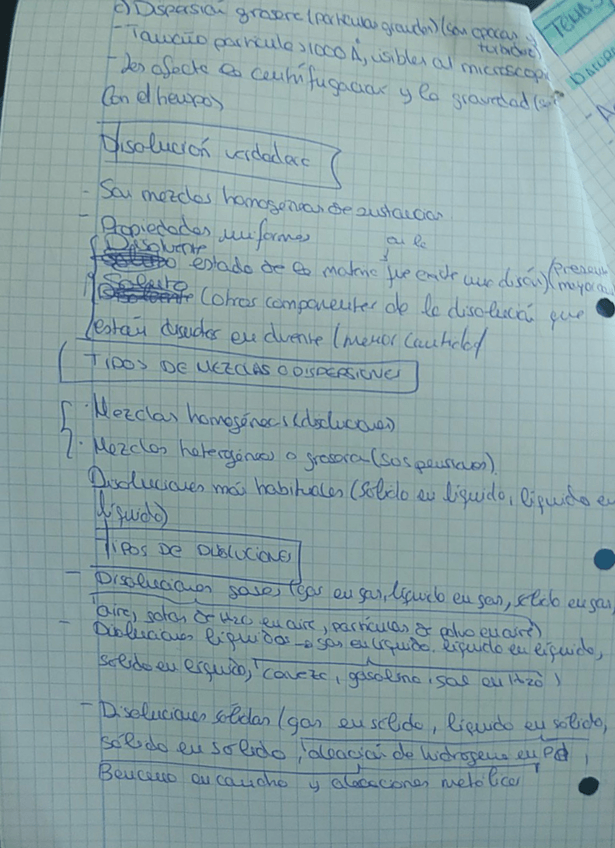 c) Dispersión grosera (partículas grandes) (son opacas y turbias
TEMA
- Tamaño partícula >1000 Å, visibles al microscopi
- Les afecta la centrifugación y la gravedad
Con el tiempo>
Disolución verdadera
- Son mezclas homogéneas de sustancias
- Propiedades uniformes
Disolvente estado de la materia en el que existe una disón) (Presenta mayor
Soluto (otros componentes de la disolución que
están disueltos en dvente (menor cantidad)
TIPOS DE MEZCLAS O DISPERSIONES
· Mezclas homogéneas (disoluciones)
· Mezclas heterogéneas o groseras (suspensiones).
Disoluciones más habituales (sólido en líquido, líquido en
líquido)
TIPOS DE DISOLUCIONES
- Disoluciones gases (gas en gas, líquido en gas, sólido en gas,
aire, gotas de H2O en aire, partículas de polvo en aire)
- Disoluciones líquidas → gas en líquido, líquido en líquido,
sólido en líquido, (cerveza, gasolina, sal en H2O)
- Disoluciones sólidas (gas en sólido, líquido en sólido,
sólido en sólido, aleación de hidrógeno en Pd,
Benceno en caucho y aleaciones metálicas